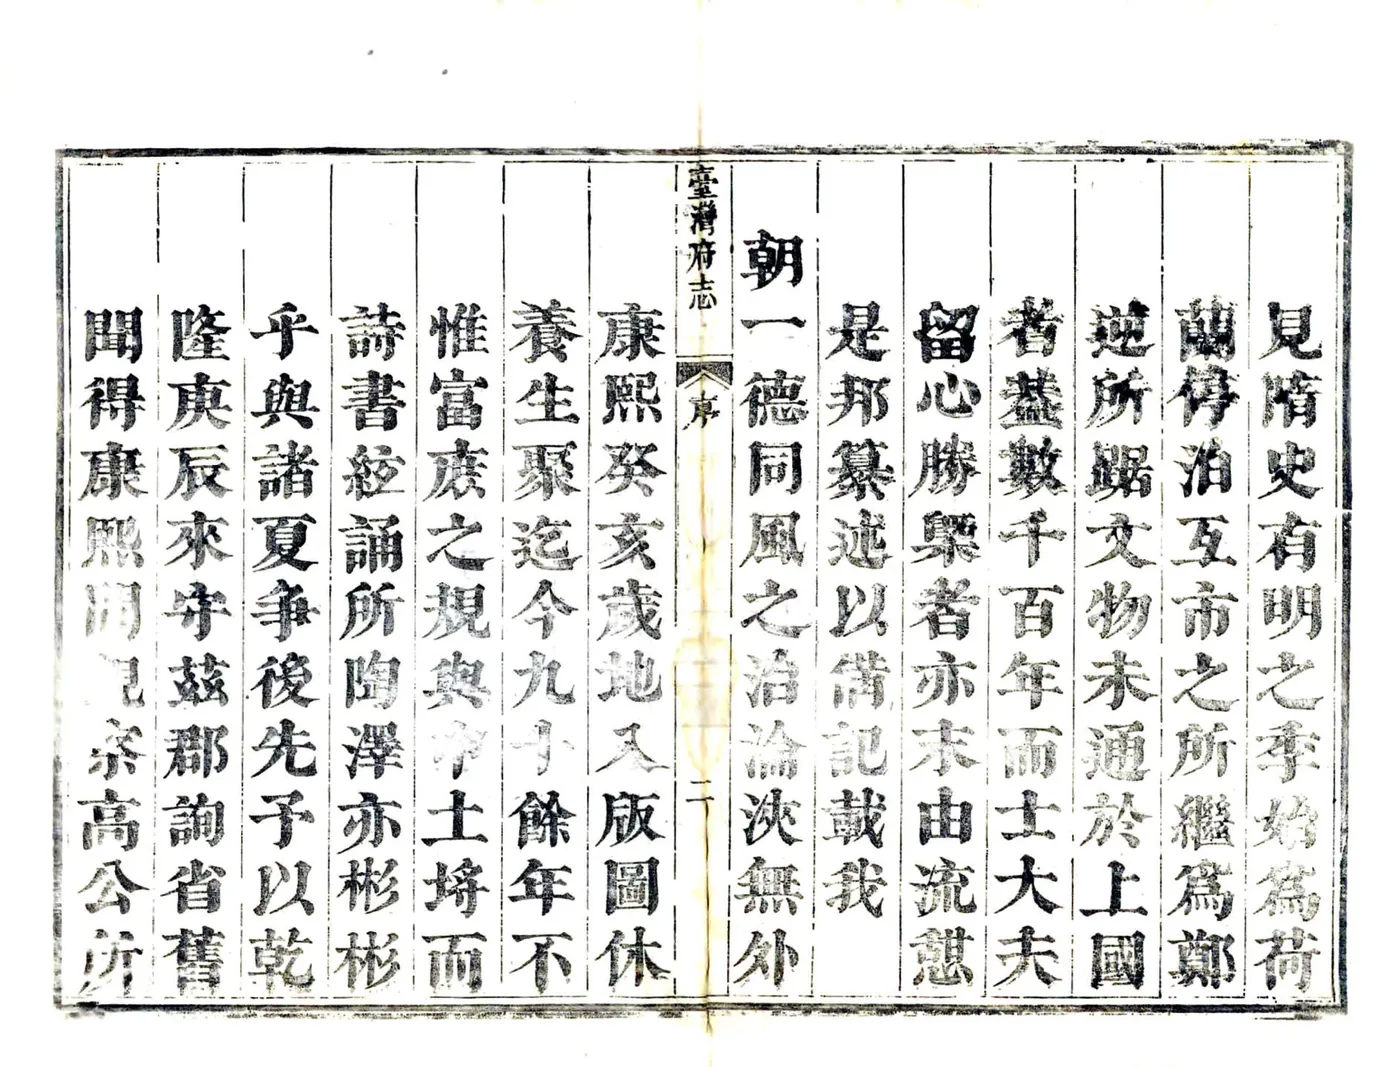 見隋史有明之季始爲荷
蘭停泊互市之所繼爲鄭
逆所踞文物未通於上國
者葢數千百年而士大夫
留心勝槩者亦末由流憇
是邦纂述以備記載我
朝一德同風之治淪浹無外
臺灣府志
序
二
康熙癸亥歲地入版圖休
養生聚迄今九十餘年不
惟富庶之規與中土埒而
詩書絃誦所陶澤亦彬彬
乎與諸夏爭後先予以乾
隆庚辰來守茲郡詢省舊
聞得康熙間觀察高公所